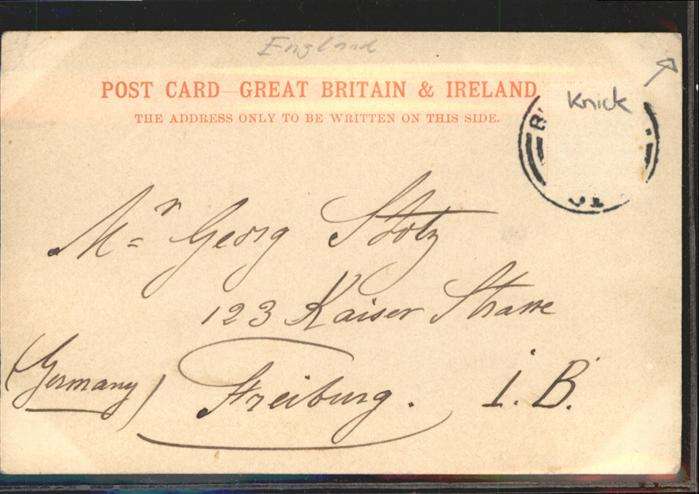 England
POST CARD GREAT BRITAIN & IRELAND
THE ADDRESS ONLY TO BE WRITTEN ON THIS SIDE.
Knick
Mr Georg Stotz
123 Kaiser Strasse
(Germany) Freiburg. i. B.